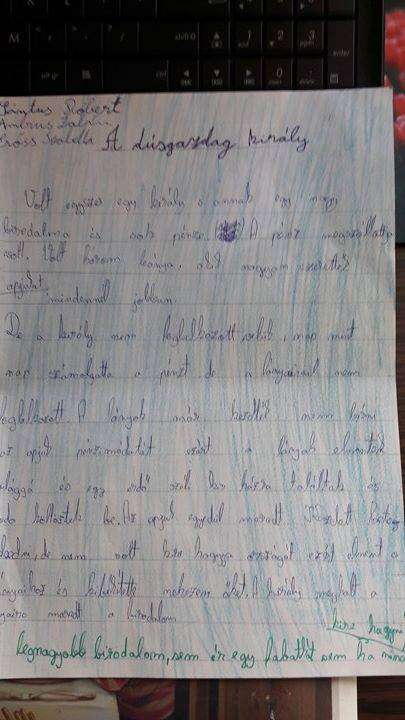 Róbert
A dúsgazdag király
Volt egyszer egy király s annak egy nagy
birodalma és sok pénze. A pénz megszállottja
volt. Volt három leánya, akik nagyon szerették
apjukat mindennél jobban.
De a király nem foglalkozott velük, nap mint
nap számolgatta a pénzt de a lányaival nem
foglalkozott. A lányok már kezdték nem bírni
az apjuk pénzimádatát ezért a lányok elmentek
világgá és egy erdő szél kis házra találtak és
oda költöztek be. Az apjuk egyedül maradt.
de nem volt kire hagyja ezért elment a
lányaihoz és kibékítette őket. A király meghalt a
maradt a birodalom
kire hagyni
legnagyobb birodalom, sem ér egy fabatkát sem ha nincs